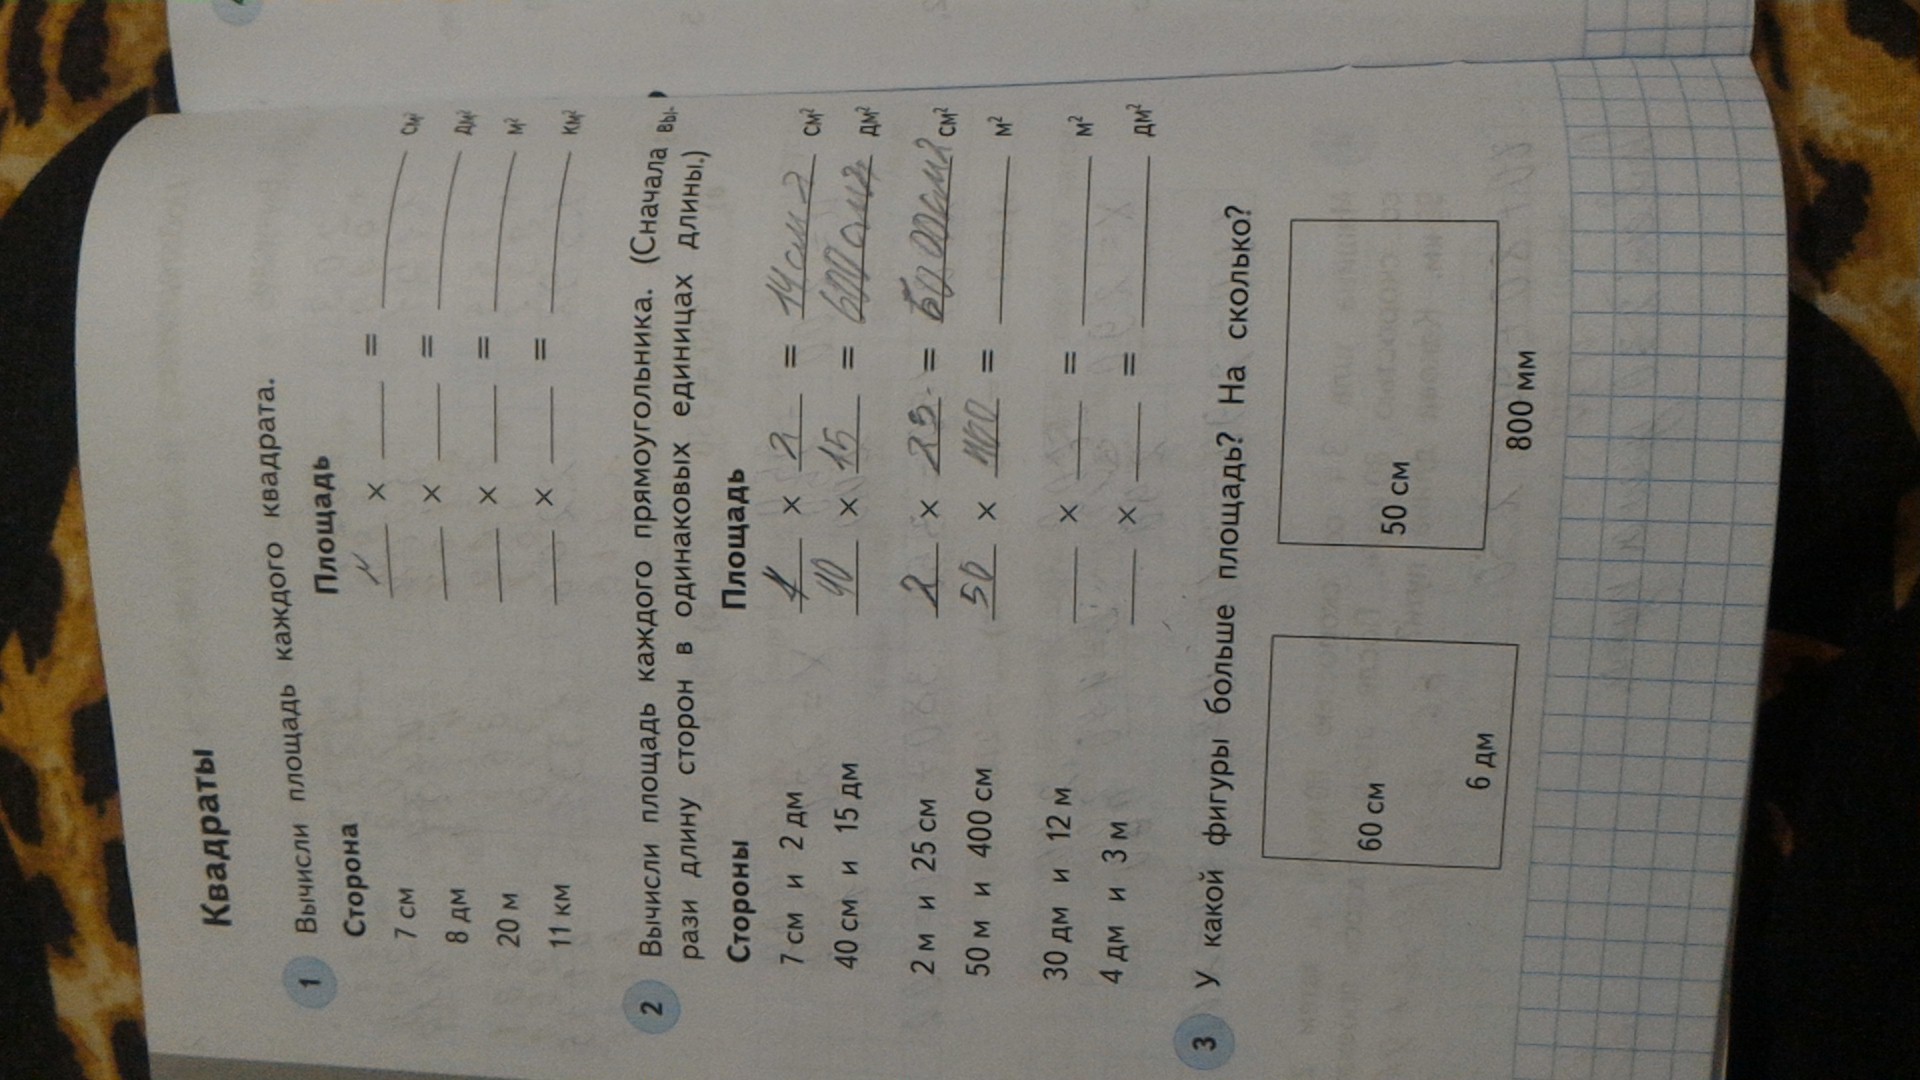 Квадраты
1 Вычисли площадь каждого квадрата.
Сторона Площадь
7 см × = см²
8 дм × = дм²
20 м × = м²
11 км × = км²
2 Вычисли площадь каждого прямоугольника. (Сначала вы-
рази длину сторон в одинаковых единицах длины.)
Стороны Площадь
7 см и 2 дм × 2 = 14 см см²
40 см и 15 дм 40 × 15 = 600 дм²
2 м и 25 см 2 × 25 = см²
50 м и 400 см 50 × 400 = м²
30 дм и 12 м × = м²
4 дм и 3 м × = дм²
3 У какой фигуры больше площадь? На сколько?
60 см 50 см
6 дм 800 мм